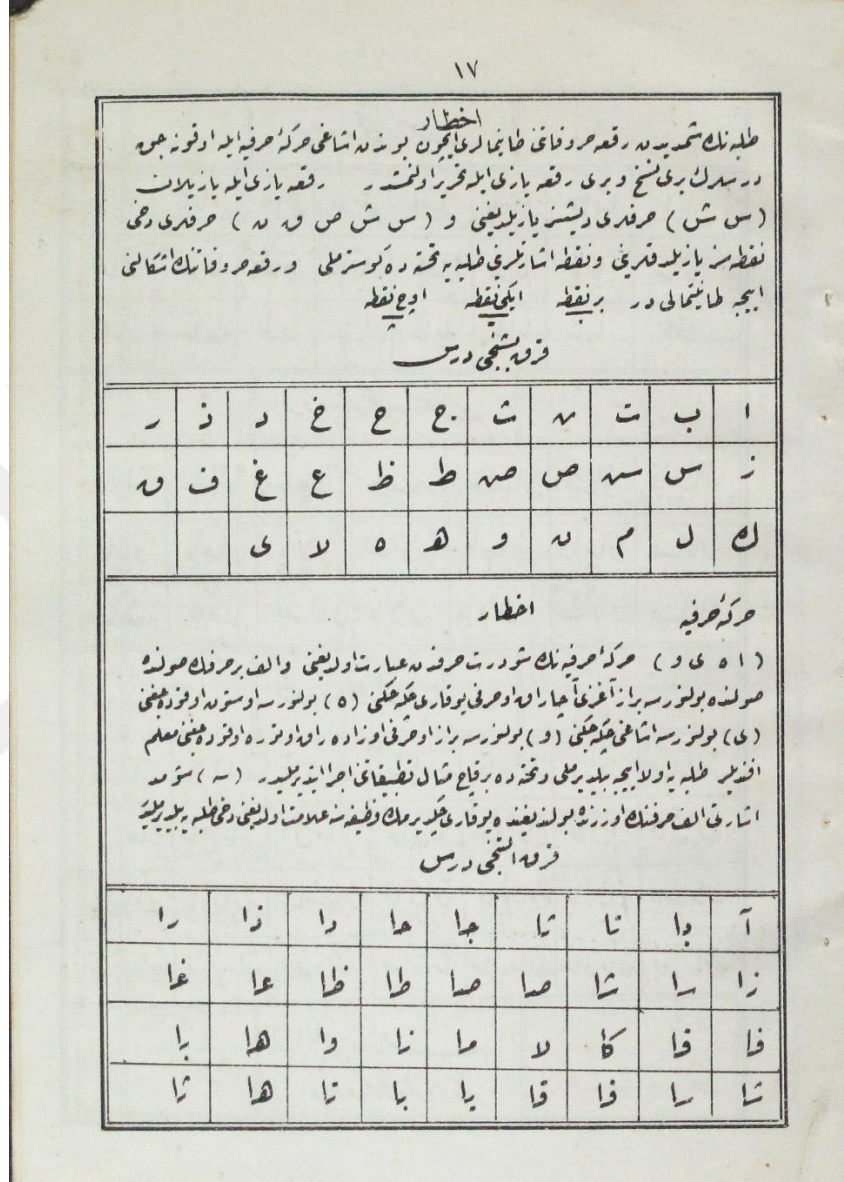 ١٧
اخطار
طلبه نك شمديدن رقعه حروفاتنى طانيمالرى ايچون بوندن اشاغى حركهٔ حرفيه ايله اوقونه جق
درسلرك برى نسخ وبرى رقعه يازى ايله تحرير اولنمشدر رقعه يازى ايله يازيلان
(س ش) حرفلرى ديشسز يازيلديغنى و (س ش ص ق ن) حرفلرى دخى
نقطه سز يازيلدقلرينى ونقطه اشارتلرينى طلبه يه تخته ده كوسترملى ورقعه حروفاتنك اشكالنى
اييجه طانيتمالى در بر نقطه ايكى نقطه اوچ نقطه
قرق بشنجى درس
ا ب ت ث ج ح خ د ذ ر
ز س ص ط ظ ع غ ف ق
ك ل م ن و ه ه لا ى
حركهٔ حرفيه اخطار
(ا ه ى و) حركهٔ حرفيه نك شو درت حرفدن عبارت اولديغنى والف بر حرفك صولنده
صولنده بولنورسه براز آغزى آچارق او حرفى يوقارى چكه جكنى (ه) بولنورسه اوستون اوقوده جغنى
(ى) بولنورسه اشاغى چكه جكنى (و) بولنورسه براز او حرفى اوزاده رق اوتوره اوقوده جغنى معلم
افنديلر طلبه يه اولا اييجه بيلديرملى وتخته ده برقاچ مثال تطبيقاتى اجرا ايتديرمليدر (~) شو مد
اشارتى الف حرفنك اوزرنده بولنديغنده يوقارى چكديرمك وظيفه سنه علامت اولديغنى دخى طلبه يه بيلديرمليدر
قرق التنجى درس
آ با تا ثا جا حا دا ذا را
زا سا شا صا ضا طا ظا عا غا
فا قا كا لا ما نا وا ها يا
شا سا فا قا يا با تا ها ثا